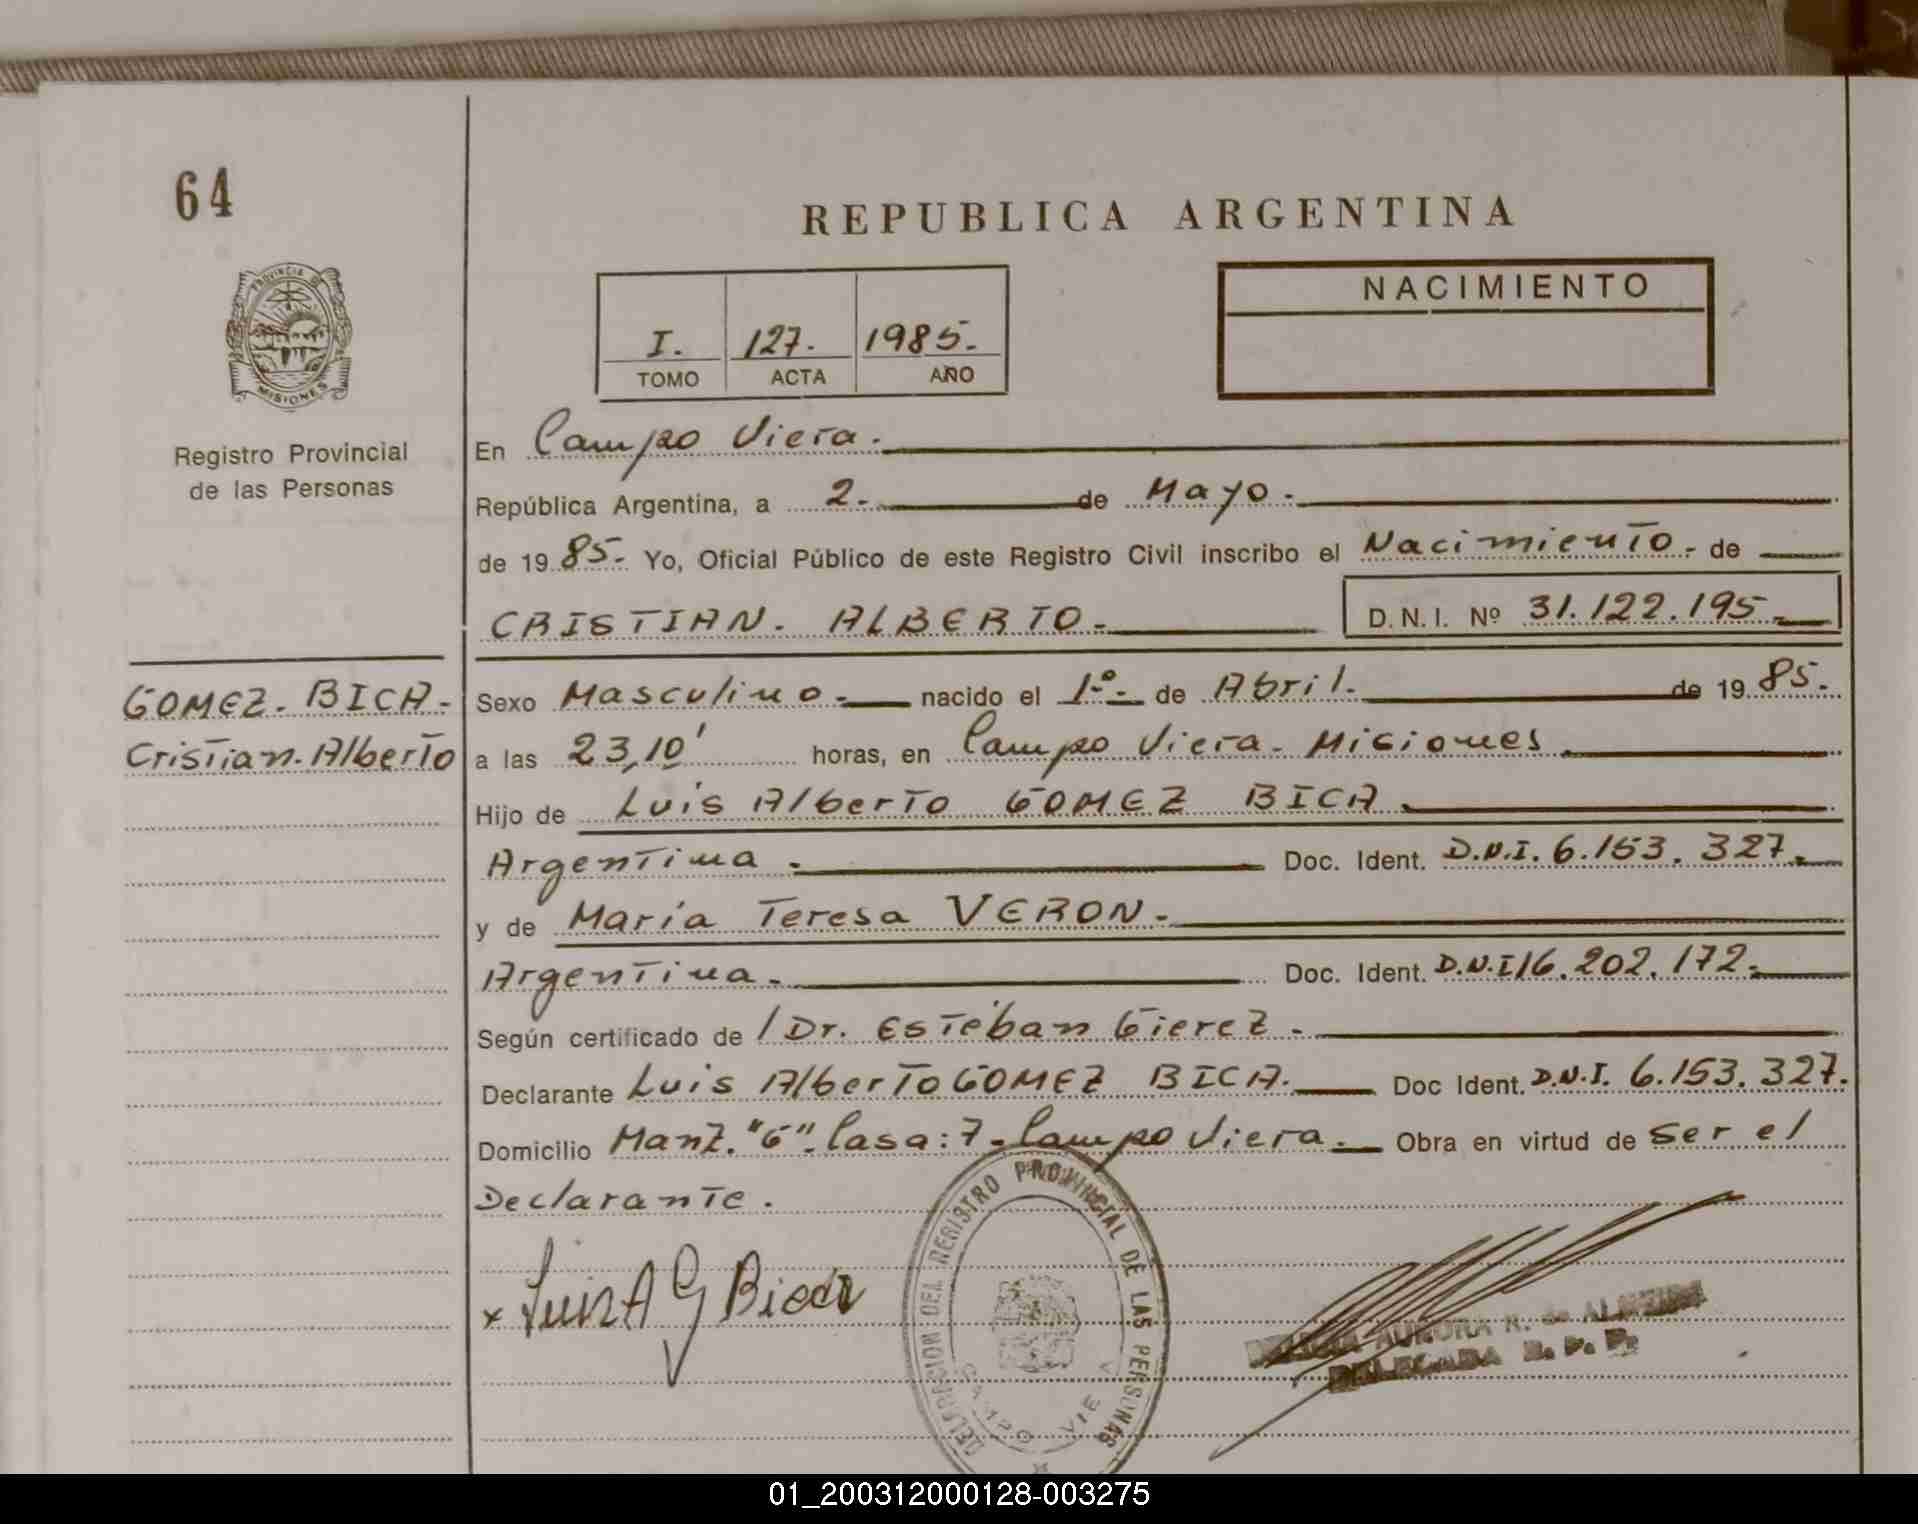 64
REPUBLICA ARGENTINA
PROVINCIA DE
MISIONES
I. 127. 1985.
TOMO ACTA AÑO
NACIMIENTO
Registro Provincial
de las Personas
En Campo Viera.
República Argentina, a 2. de Mayo.
de 19 85. Yo, Oficial Público de este Registro Civil inscribo el Nacimiento. de
CRISTIAN. ALBERTO. D.N.I. Nº 31.122.195
GOMEZ. BICA.
Cristian. Alberto
Sexo Masculino. nacido el 1º. de Abril. de 19 85.
a las 23,10' horas, en Campo Viera. Misiones.
Hijo de Luis Alberto GOMEZ BICA.
Argentina. Doc. Ident. D.N.I. 6.153.327.
y de Maria Teresa VERON.
Argentina. Doc. Ident. D.N.I 16.202.172.
Según certificado de / Dr. Esteban Gierez.
Declarante Luis Alberto GOMEZ BICA. Doc Ident. D.N.I. 6.153.327.
Domicilio Manz. "6". Casa: 7. Campo Viera. Obra en virtud de Ser el
Declarante.
x Luis A G Bica
DELEGACION DEL REGISTRO PROVINCIAL DE LAS PERSONAS
CAMPO VIERA
AURORA R. de
DELEGADA R. P. P.
01_200312000128-003275